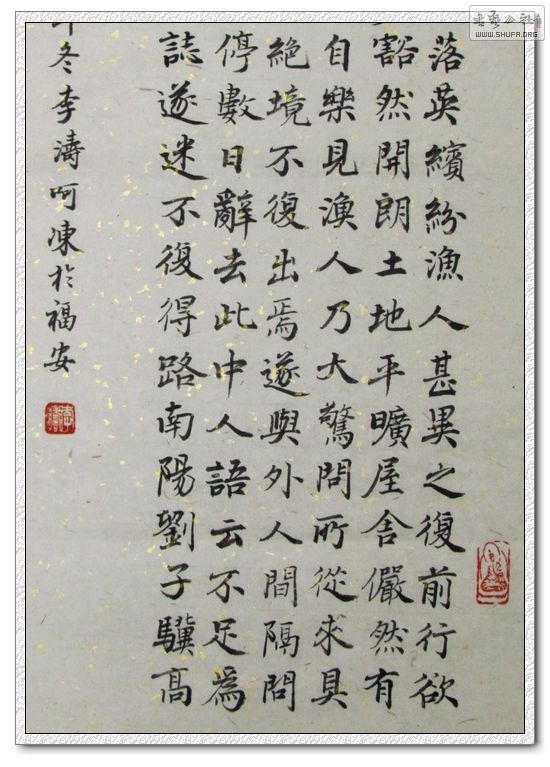 落英繽紛漁人甚異之復前行欲
豁然開朗土地平曠屋舍儼然有
自樂見漁人乃大驚問所從來具
絕境不復出焉遂與外人間隔問
停數日辭去此中人語云不足為
誌遂迷不復得路南陽劉子驥高
冬李濤呵凍於福安
WWW.SHUFA.ORG